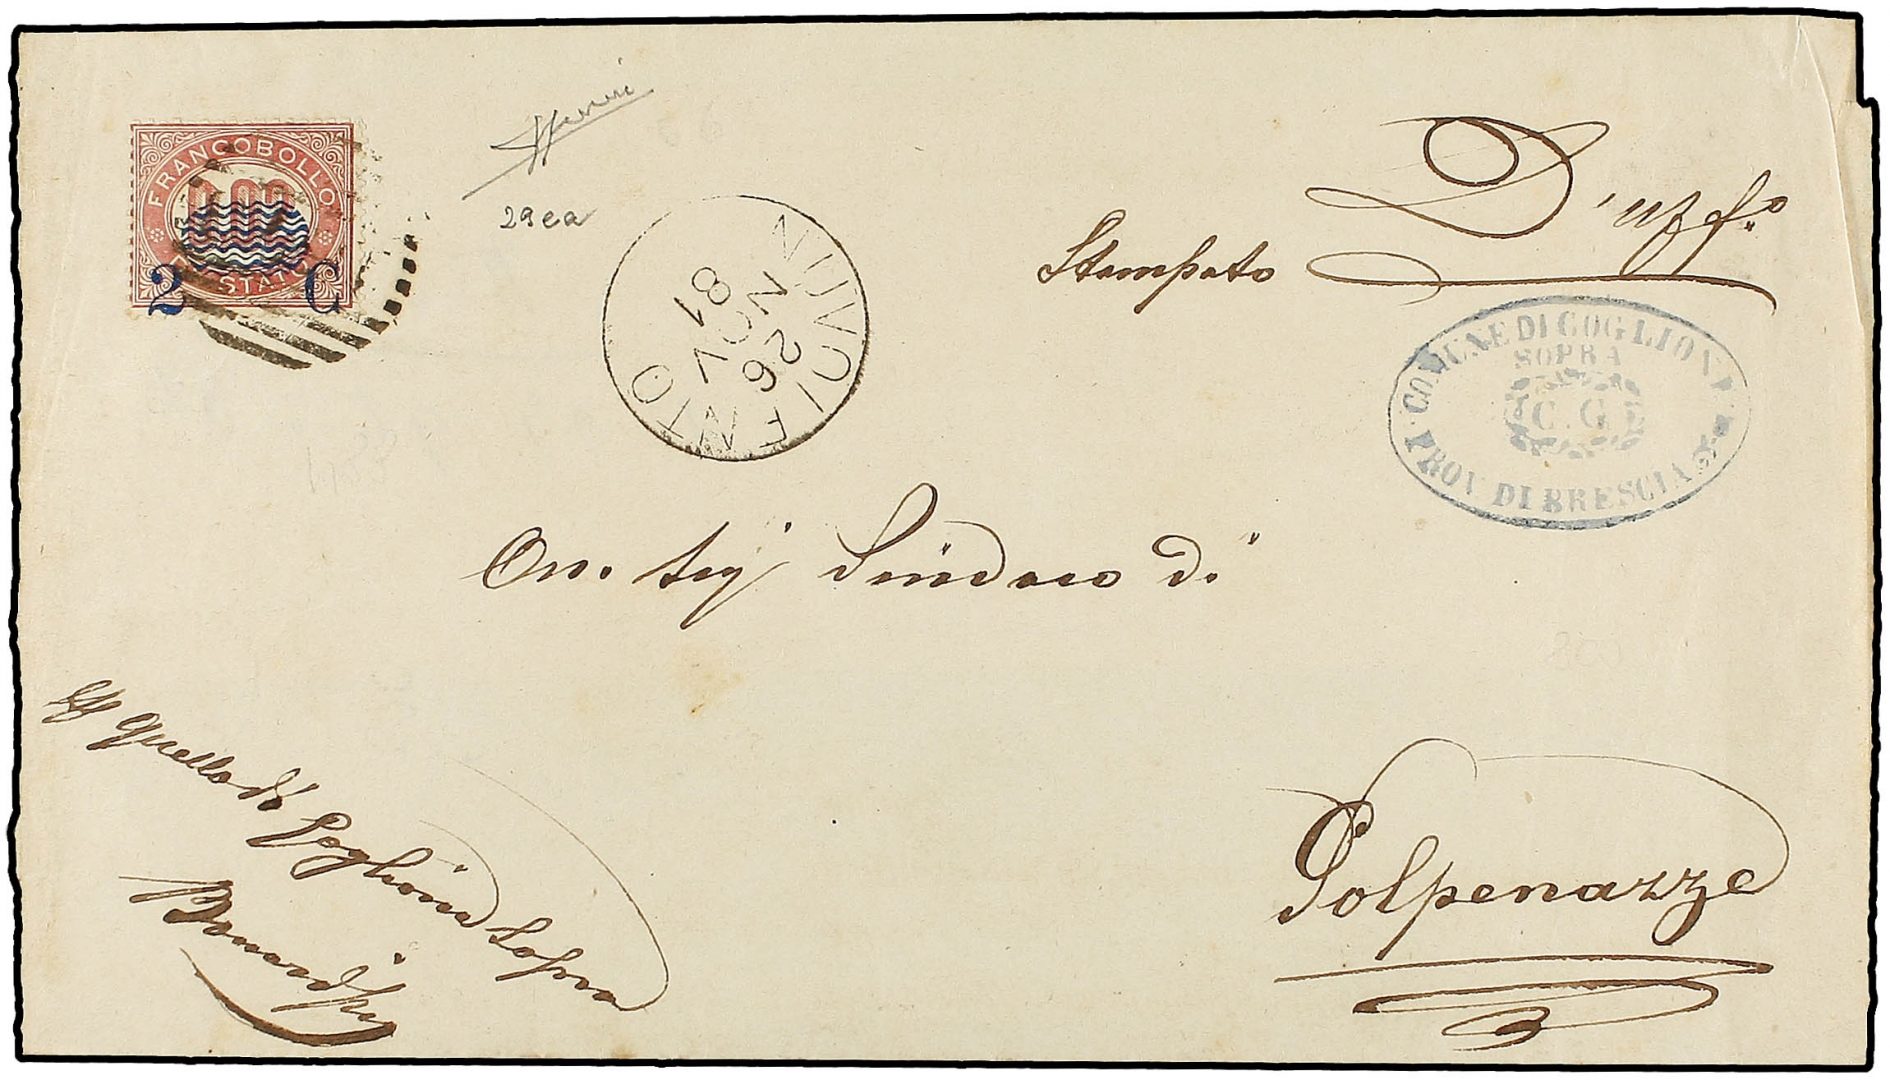 FRANCOBOLLO
DI STATO
2 C
29ea
NUVOLENTO
26
NOV
81
Stampato D'uff.o
COMUNE DI GOGLIONE
SOPRA
C.G.
PROV DI BRESCIA
On. Sig Sindaco di
Il quello di Goglione Sopra
Polpenazze